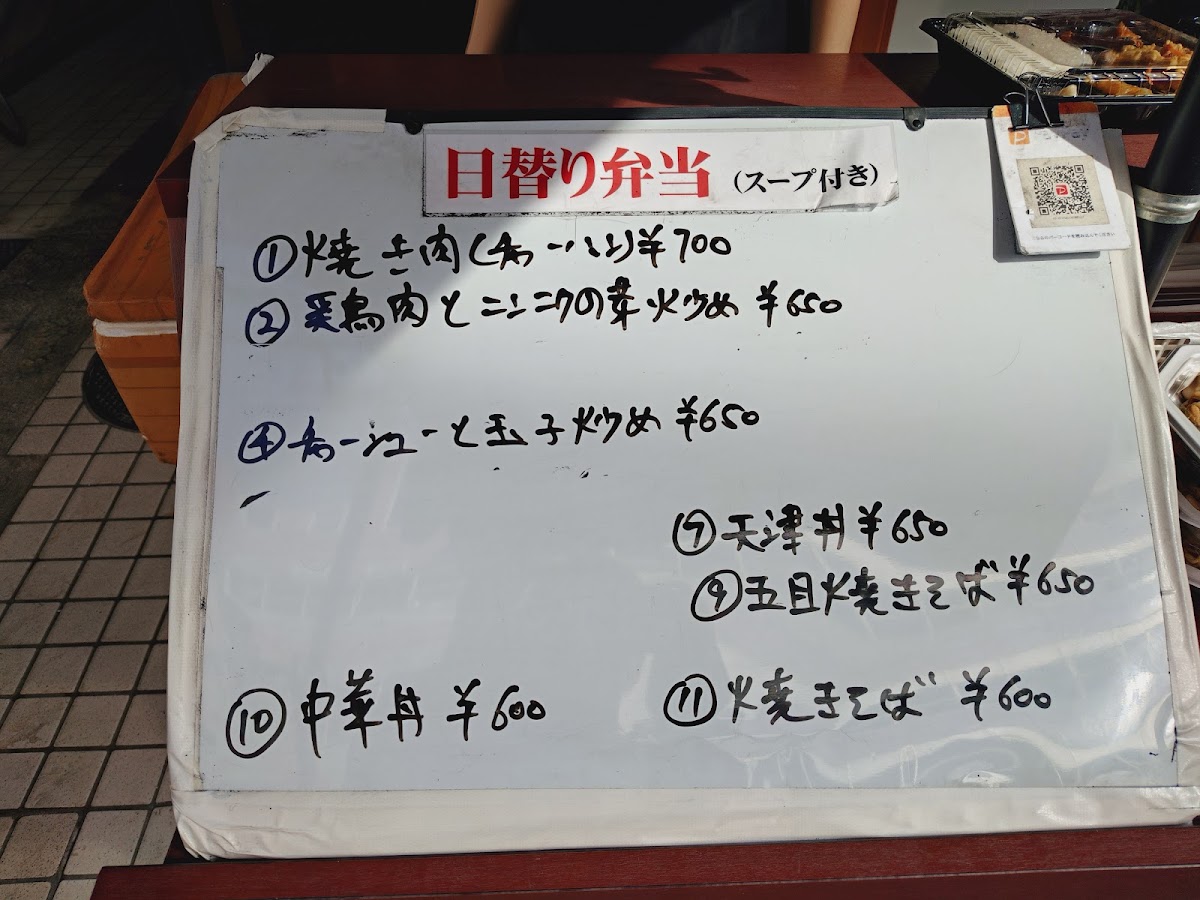 日替り弁当 (スープ付き)
①焼き肉(チャーハン)¥700
② 鶏肉とニンニクの芽炒め ¥650
④チャーシューと玉子炒め ¥650
⑦天津丼¥650
⑨五目焼きそば¥650
⑩中華丼 ¥600
⑪焼きそば ¥600